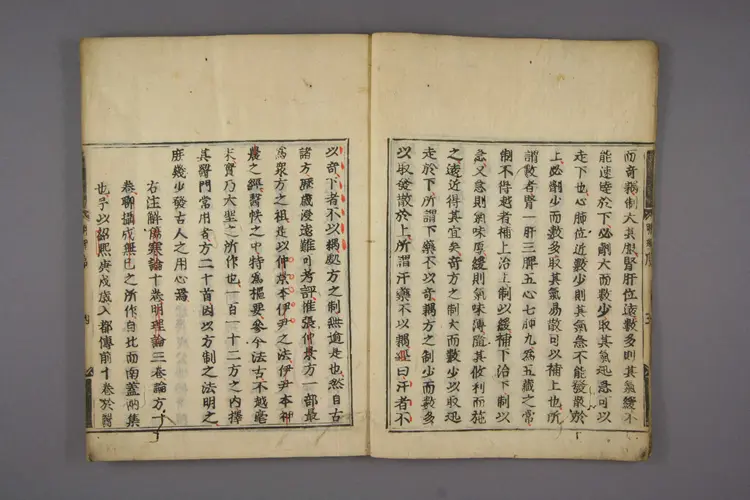 而奇耦制大其服腎肝位遠數多則其氣緩不
能速達於下必劑大而數少取其氣迅急可以
走下也心肺位近數少則其氣急不能發散於
上必劑少而數多取其氣易散可以補上也所
謂數者腎一肝三脾五心七肺九爲五藏之常
制不得越者補上治上制以緩補下治下制以
急又急則氣味厚緩則氣味薄隨其攸利而施
之遠近得其宜矣奇方之制大而數少以取迅
走於下所謂下藥不以奇耦方之制少而數多
以取發散於上所謂汗藥不以耦經曰汗者不
以奇下者不以耦處方之制無逾是也然自古
諸方歷歲浸遠難可考評推張仲景方一部最
爲衆方之祖是以仲景本伊尹之法伊尹本神
農之經醫帙之中特爲樞要參今法古不越毫
末實乃大聖之所作也一百一十二方之內擇
其醫門常用者方二十首因以方制之法明之
庶幾少發古人之用心焉
右注解傷寒論十卷明理論三卷論方一
卷聊攝成無已之所作自北而南蓋兩集
也予以紹熙庚戌歲入都傳前十卷於醫